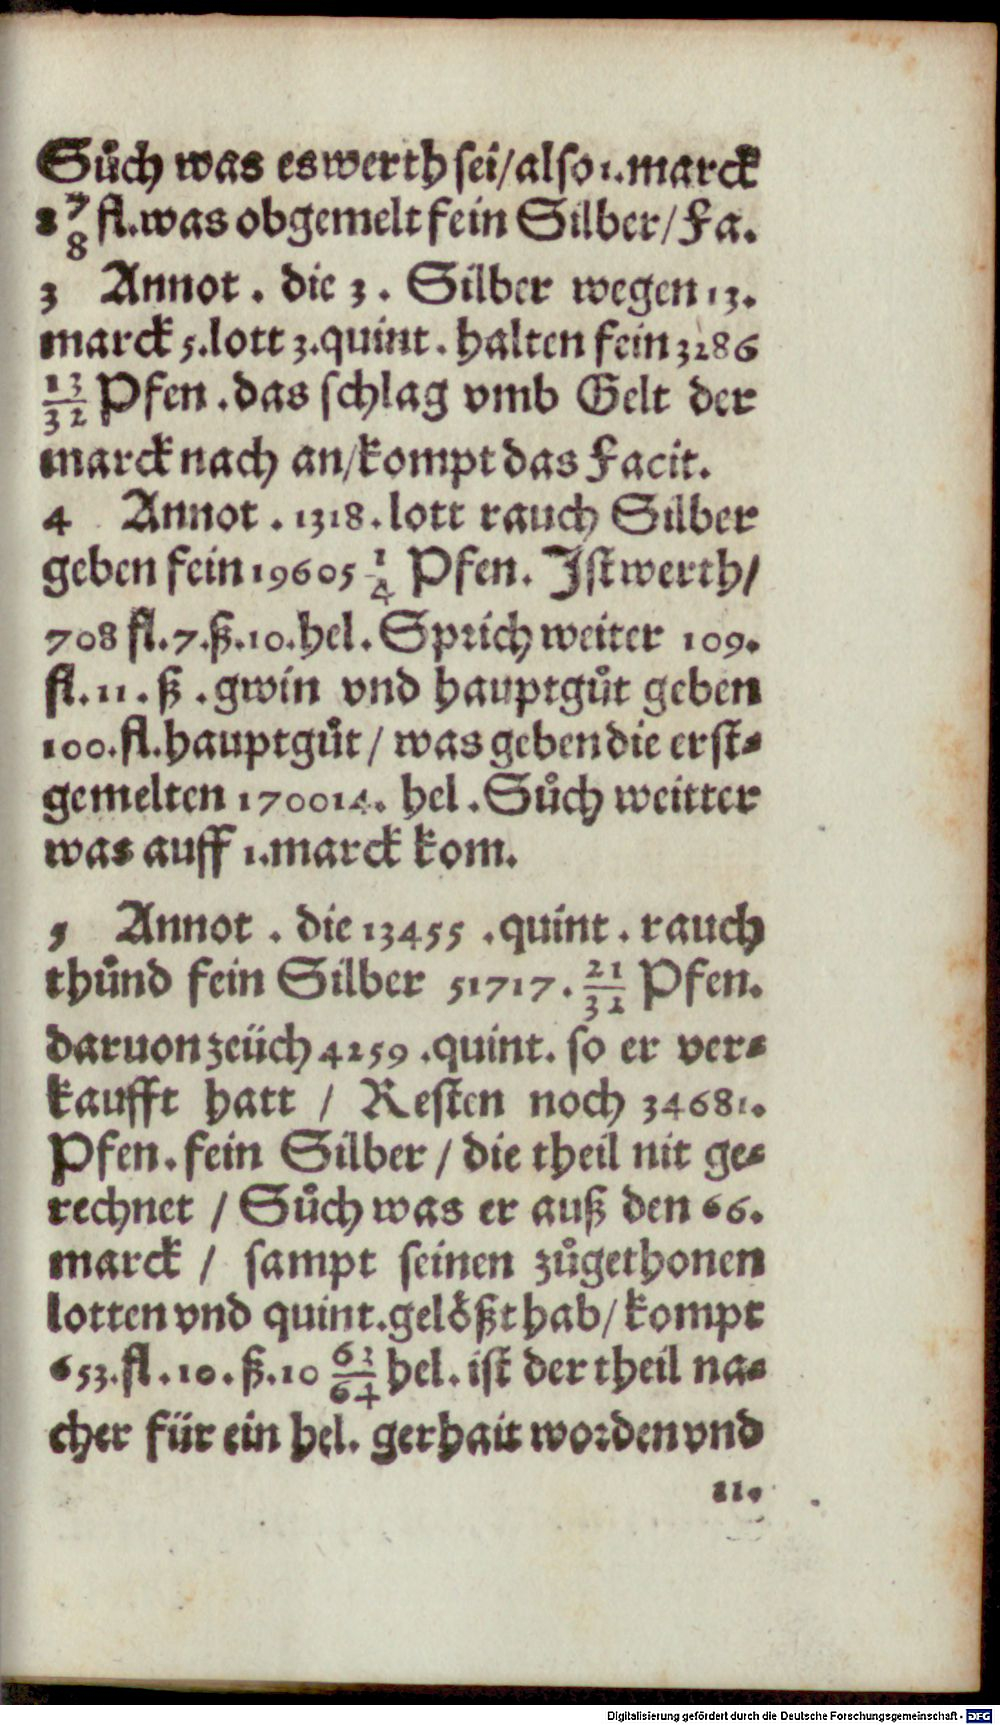 Sůch was es werth sei/also 1. marck
8 7/8 fl. was obgemelt fein Silber/Fa.
3 Annot. die 3. Silber wegen 13.
marck 5. lott 3. quint. halten fein 3286
13/32 Pfen. das schlag vmb Gelt der
marck nach an/kompt das Facit.
4 Annot. 1318. lott rauch Silber
geben fein 19605 1/4 Pfen. Jst werth/
708 fl. 7. ß. 10. hel. Sprich weiter 109.
fl. 11. ß. gwin vnd hauptgůt geben
100. fl. hauptgůt/ was geben die erst-
gemelten 170014. hel. Sůch weitter
was auff 1. marck kom.
5 Annot. die 13455. quint. rauch
thůnd fein Silber 51717. 21/32 Pfen.
daruon zeüch 4259. quint. so er ver-
kaufft hatt / Resten noch 34681.
Pfen. fein Silber / die theil nit ge-
rechnet / Sůch was er auß den 66.
marck / sampt seinen zůgethonen
lotten vnd quint. gelößt hab/ kompt
653. fl. 10. ß. 10 63/64 hel. ist der theil na-
cher für ein hel. gerhait worden vnd
11.
Digitalisierung gefördert durch die Deutsche Forschungsgemeinschaft - DFG